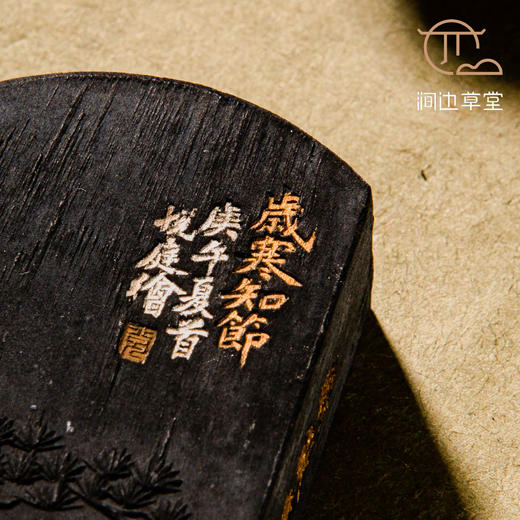 涧边草堂
歲寒知節
庚午夏首
硯庭繪